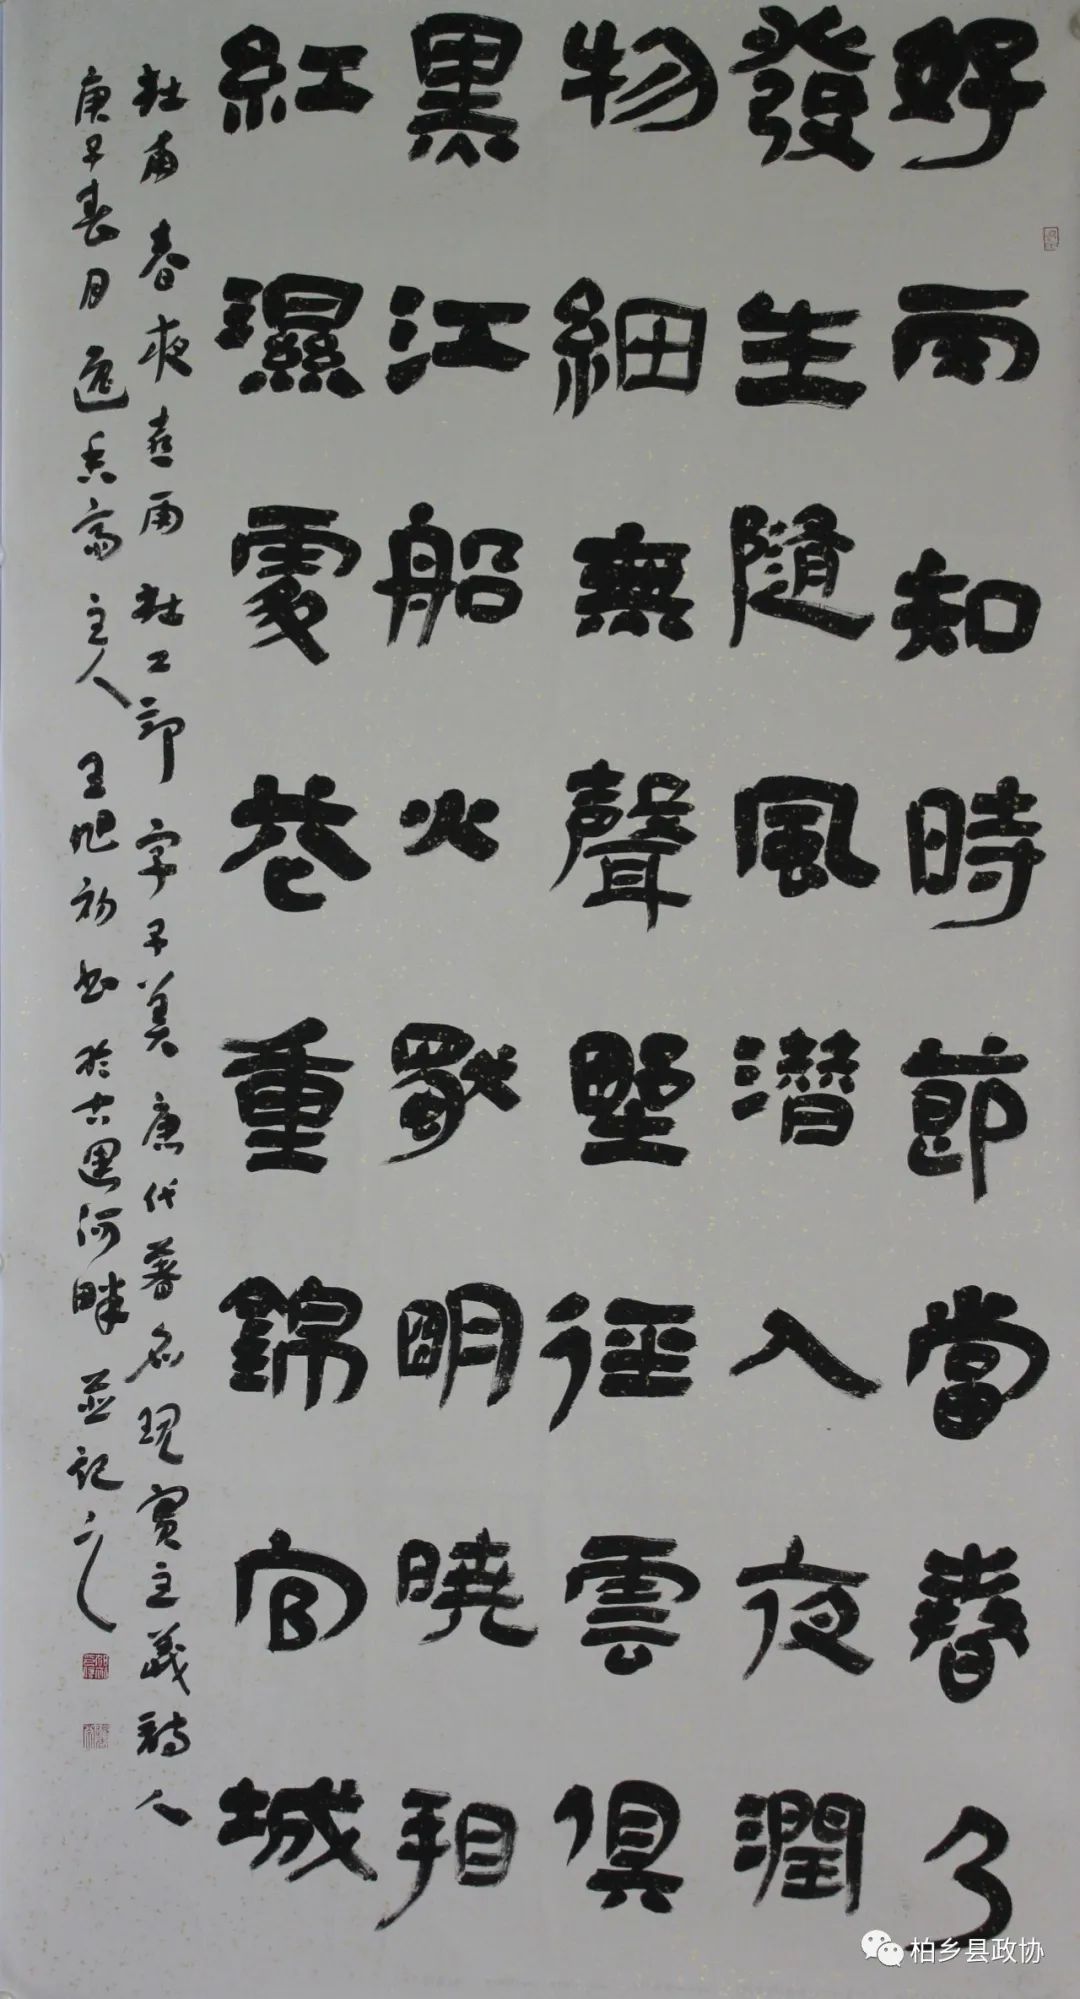 好雨知時節當春乃
發生隨風潛入夜潤
物細無聲野徑雲俱
黑江船火獨明曉看
紅濕處花重錦官城
杜甫春夜喜雨杜工部字子美唐代著名現實主義詩人
庚子春月逸香齋主人王旭初书於古河畔並記之
柏乡县政协